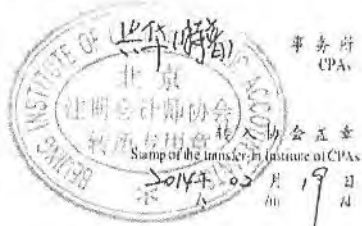 事务所
CPAs
BEIJING INSTITUTE OF
ACCOUNTANTS
北京
注册会计师协会
转所专用章
转入协会盖章
Stamp of the transfer-in Institute of CPAs
2014年 02月 19日